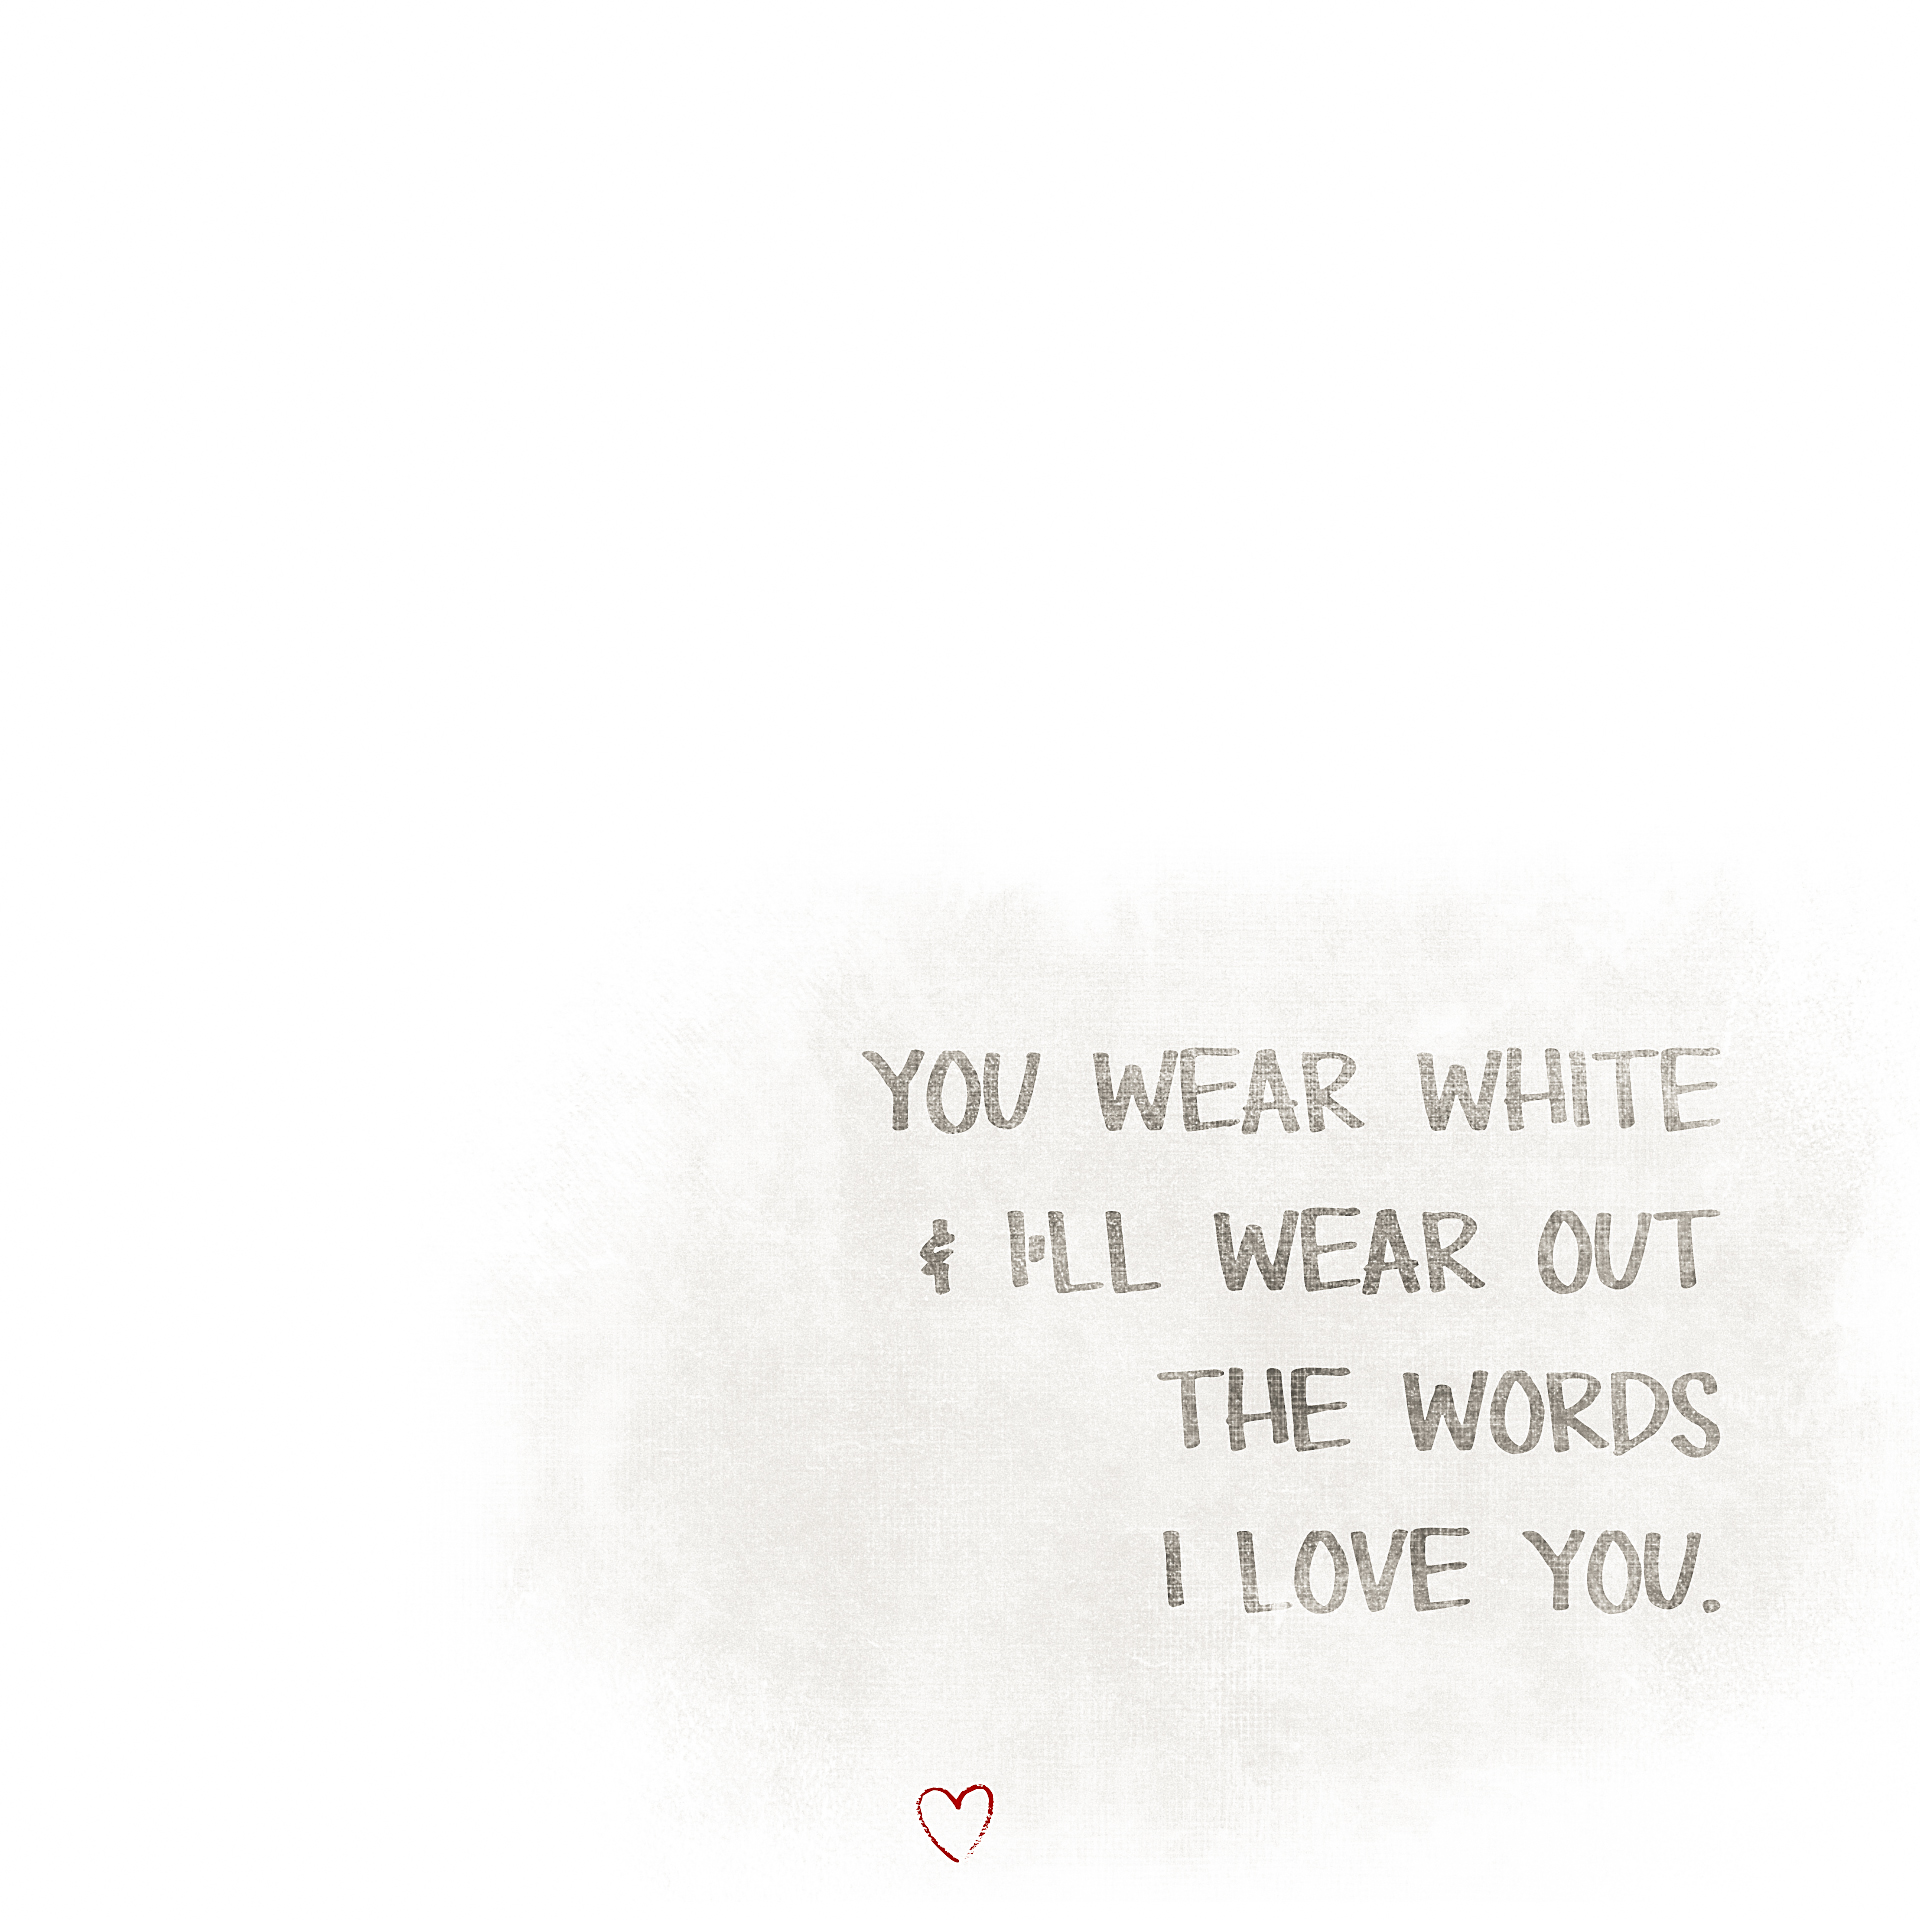 YOU WEAR WHITE
& I'LL WEAR OUT
THE WORDS
I LOVE YOU.